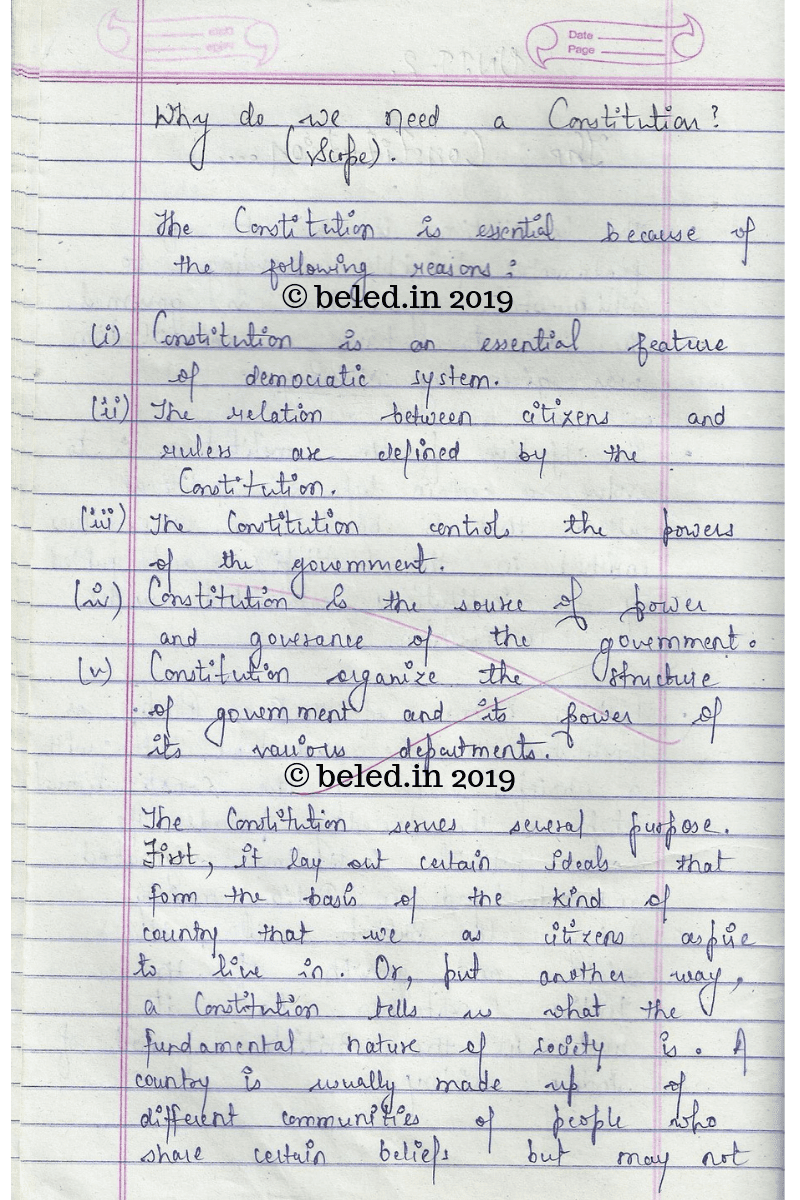 Date
Page
Why do we need a Constitution?
(Scope).
The Constitution is essential because of
the following reasons:
© beled.in 2019
(i) Constitution is an essential feature
of democratic system.
(ii) The relation between citizens and
rulers are defined by the
Constitution.
(iii) The Constitution controls the powers
of the government.
(iv) Constitution is the source of power
and goverance of the government.
(v) Constitution organize the structure
of government and its power of
its various departments.
© beled.in 2019
The Constitution serves several purpose.
First, it lay out certain ideals that
form the basis of the kind of
country that we as citizens aspire
to live in. Or, put another way,
a Constitution tells us what the
fundamental nature of society is. A
country is usually made up of
different communities of people who
share certain beliefs but may not